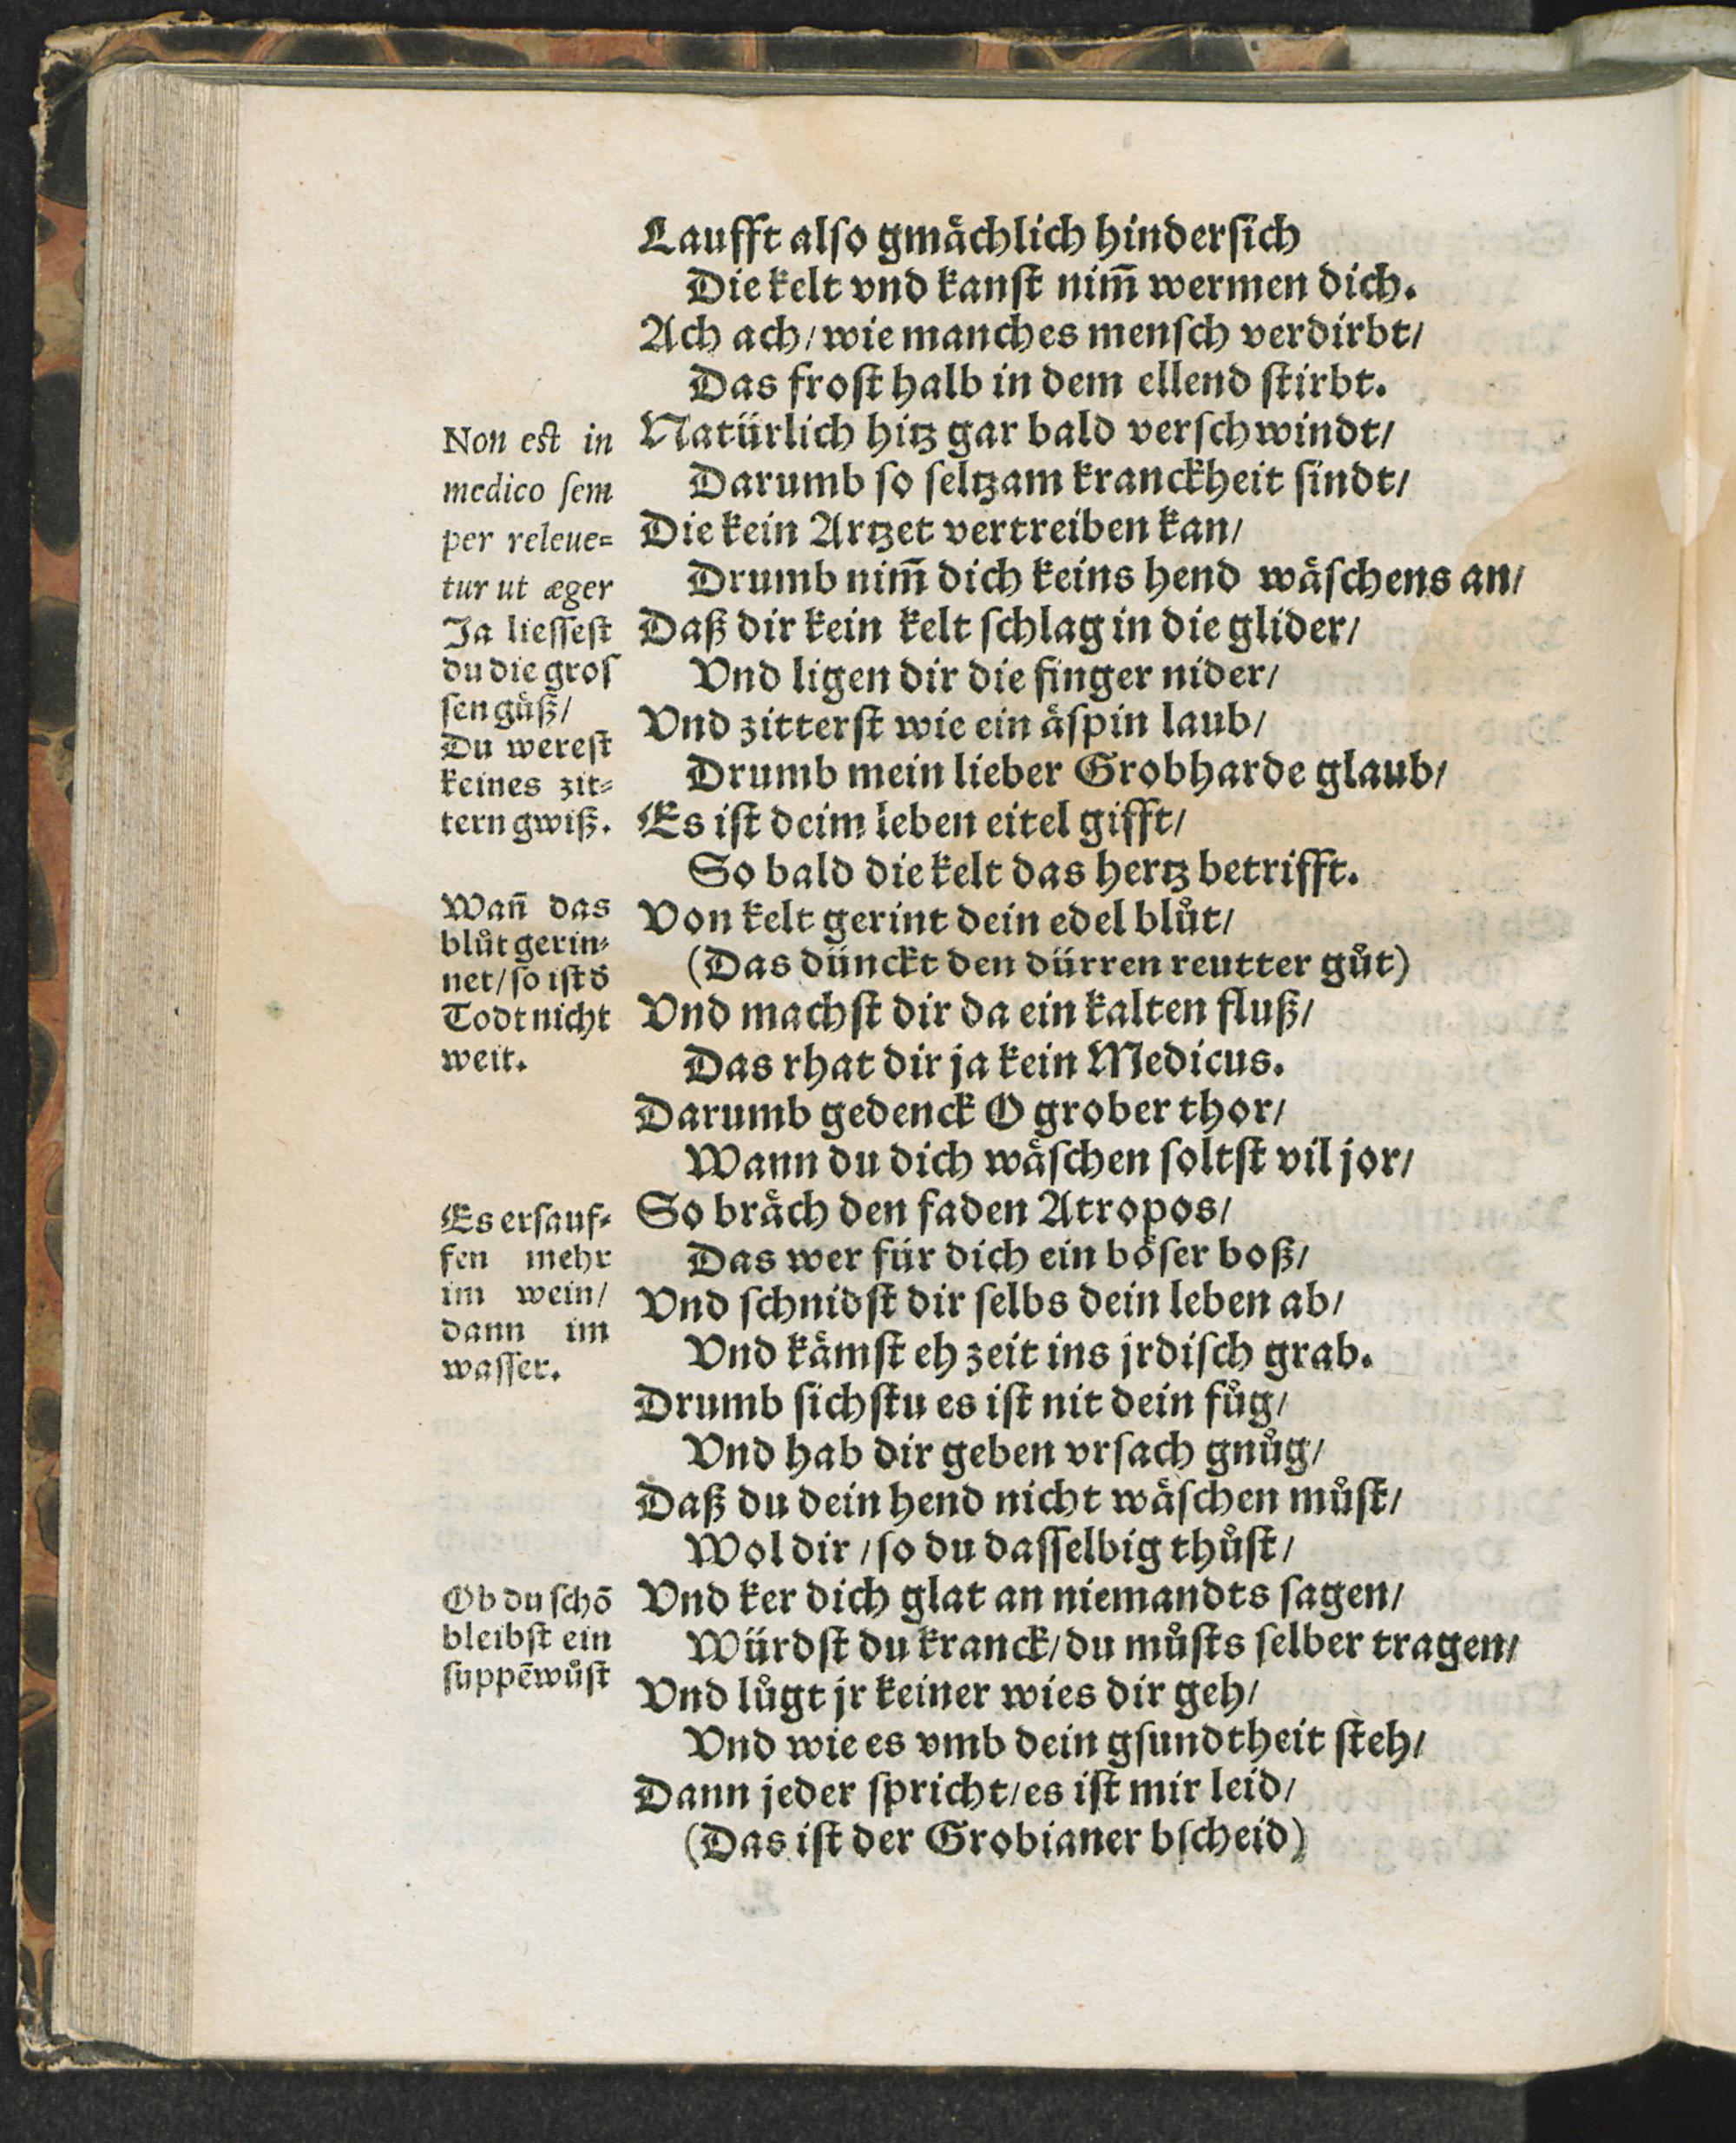 Laufft also gmächlich hindersich
Die kelt vnd kanst nim̃ wermen dich.
Ach ach/ wie manches mensch verdirbt/
Das frost halb in dem ellend stirbt.
Non est in
medico sem
per releue=
tur ut æger
Natürlich hitz gar bald verschwindt/
Darumb so seltzam kranckheit sindt/
Die kein Artzet vertreiben kan/
Drumb nim̃ dich keins hend wäschens an/
Ja liessest
du die gros
sen gäß/
Du werest
keines zit=
tern gwiß.
Daß dir kein kelt schlag in die glider/
Vnd ligen dir die finger nider/
Vnd zitterst wie ein äspin laub/
Drumb mein lieber Grobharde glaub/
Es ist deim leben eitel gifft/
So bald die kelt das hertz betrifft.
Wañ das
blůt gerin=
net/ so ist d̄
Todt nicht
weit.
Von kelt gerint dein edel blůt/
(Das dünckt den dürren reutter gůt)
Vnd machst dir da ein kalten fluß/
Das rhat dir ja kein Medicus.
Darumb gedenck O grober thor/
Wann du dich wäschen soltst vil jor/
Es ersauf=
fen mehr
im wein/
dann im
wasser.
So bräch den faden Atropos/
Das wer für dich ein böser boß/
Vnd schnidst dir selbs dein leben ab/
Vnd kämst eh zeit ins jrdisch grab.
Drumb sichstu es ist nit dein fůg/
Vnd hab dir geben vrsach gnůg/
Daß du dein hend nicht wäschen můst/
Wol dir / so du dasselbig thůst/
Ob du schō
bleibst ein
suppēwůst
Vnd ker dich glat an niemandts sagen/
Würdst du kranck/ du můsts selber tragen/
Vnd lůgt jr keiner wies dir geh/
Vnd wie es vmb dein gsundtheit steh/
Dann jeder spricht/ es ist mir leid/
(Das ist der Grobianer bscheid)